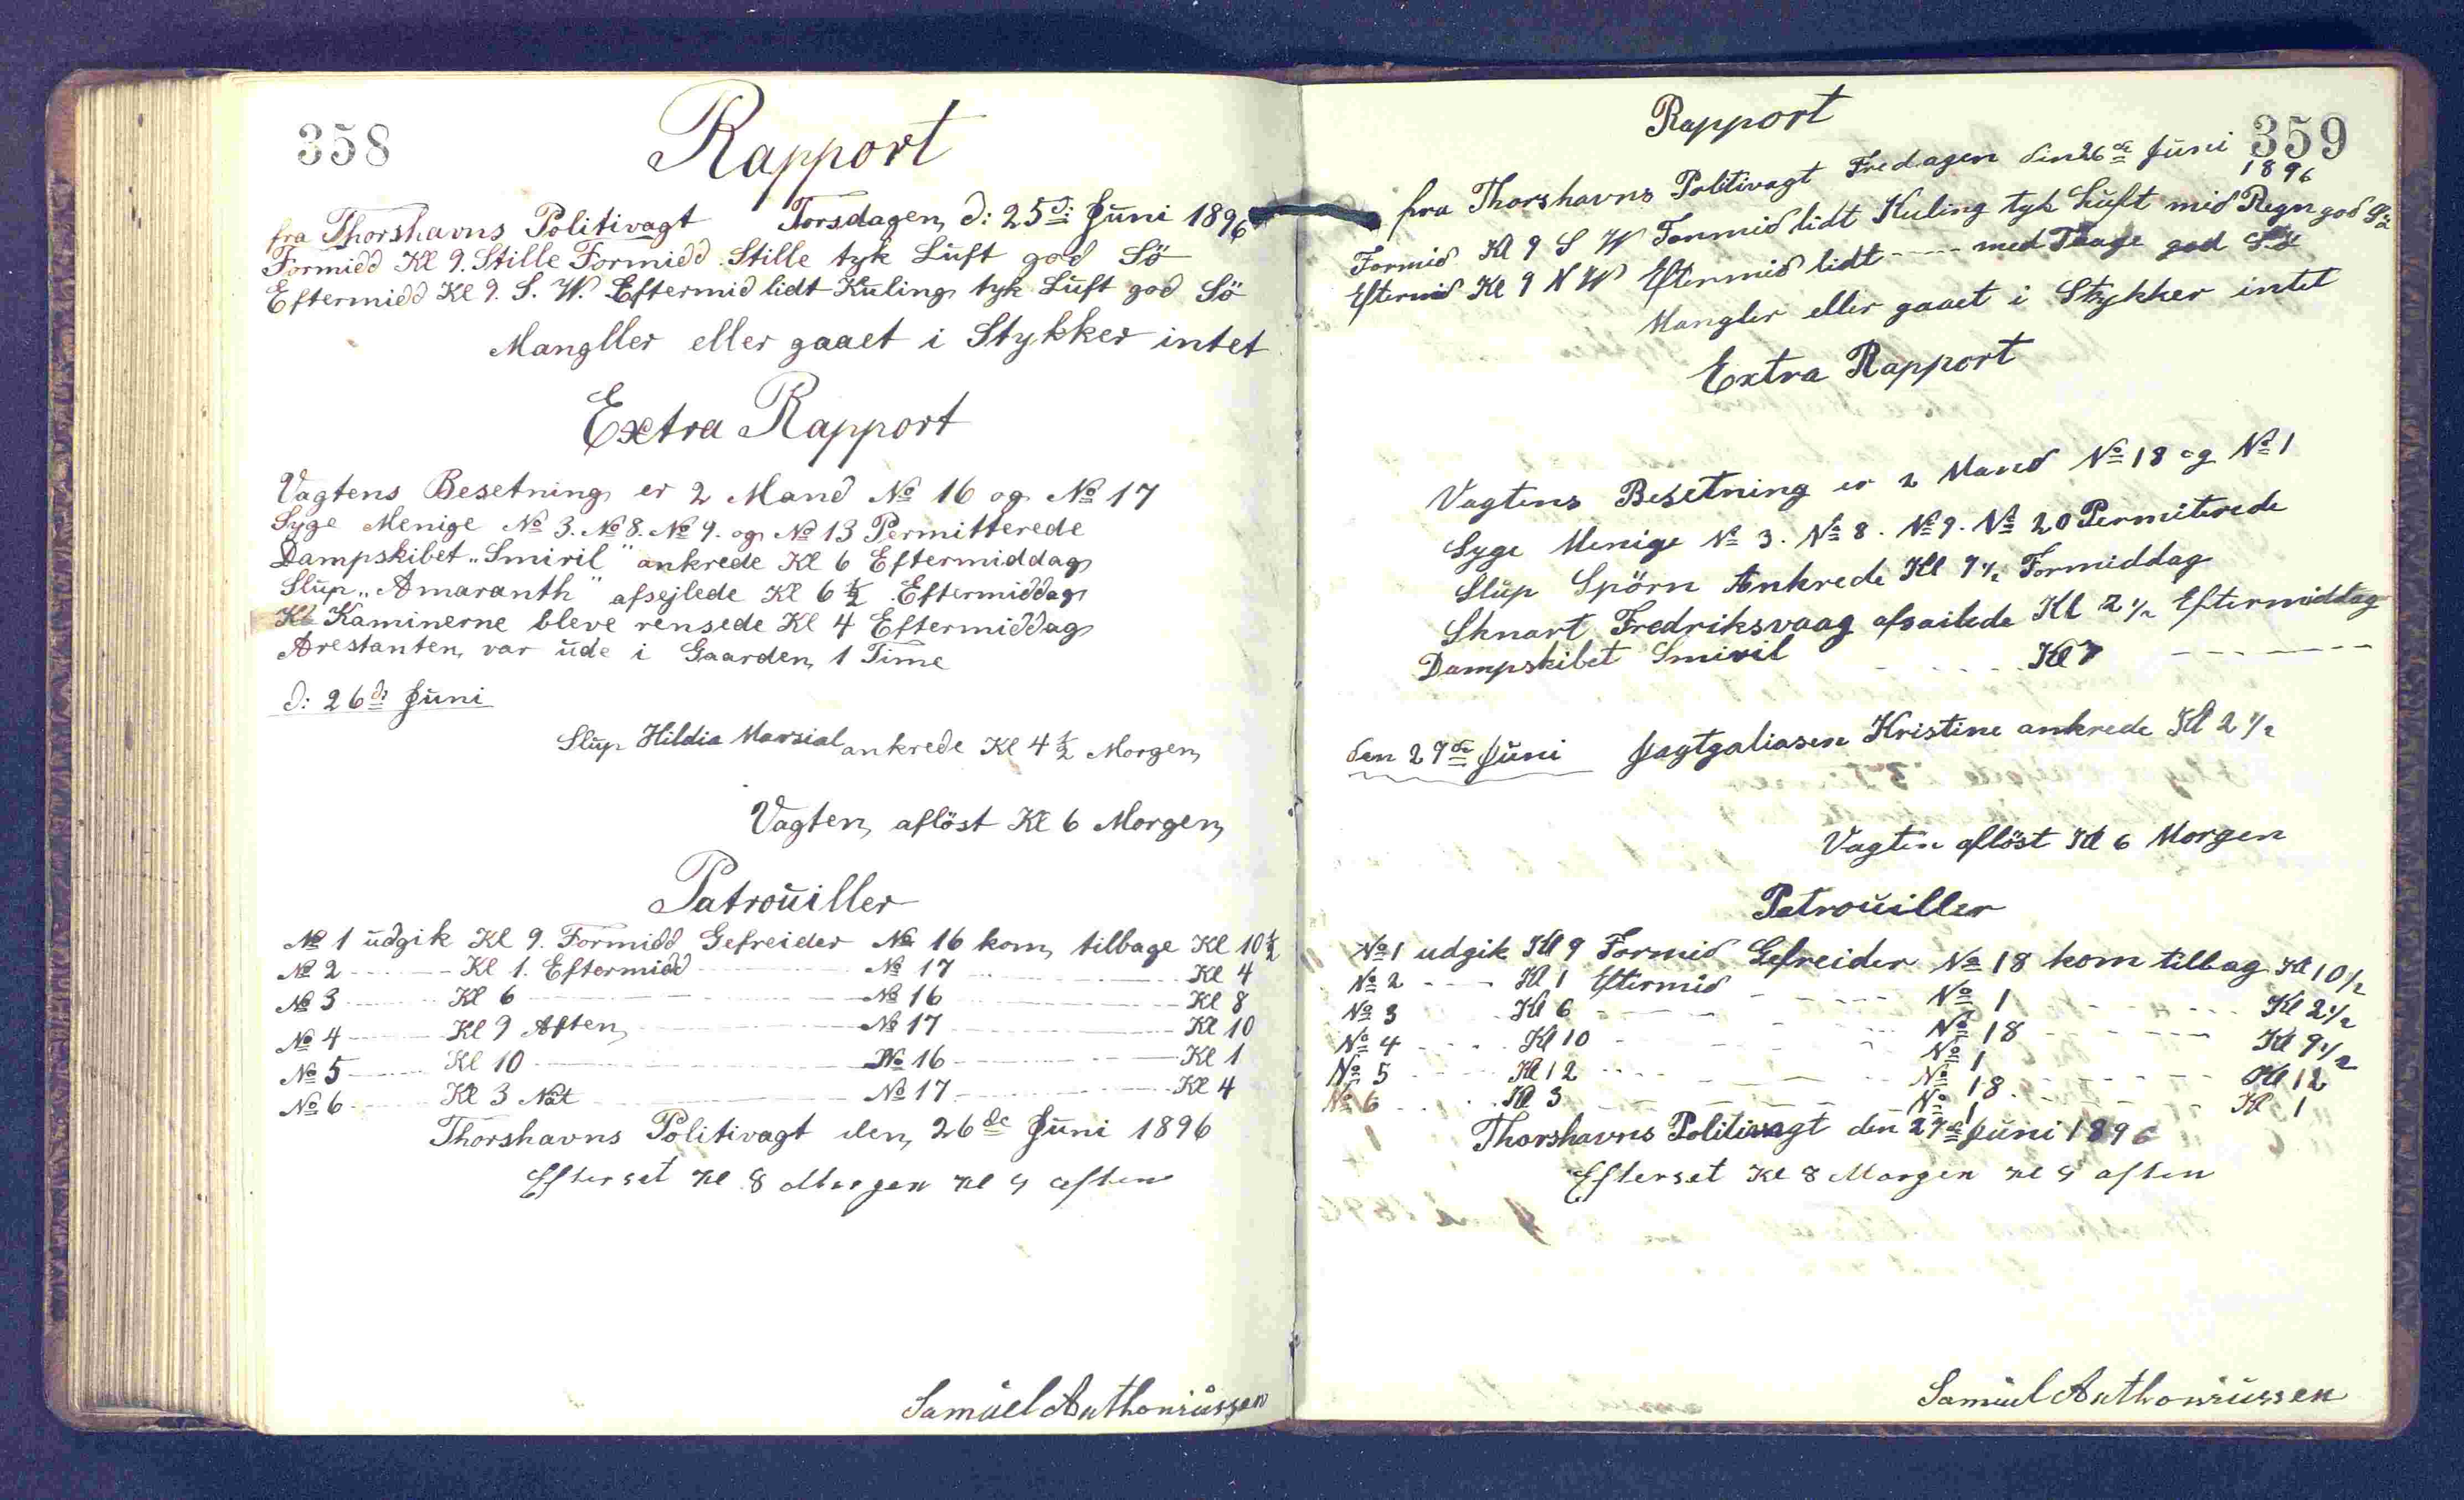 358
Rapport
fra Thorshavns Politivagt Torsdagen d: 25de Juni 1896
Formidd Kl 9. Stille Formidd Stille tyk Luft god Sö
Eftermidd Kl 9. S. W. Eftermid lidt Kuling tyk Luft god Sö
Mangller eller gaaet i Stykker intet
Extra Rapport
Vagtens Besetning er 2 Mand No 16 og No 17
Syge Menige No 3. No 8. No 9. og No 13 Permitterede
Dampskibet „Smiril" ankrede Kl 6 Eftermiddag
Slup „Amaranth" afsejlede Kl 6 1/2 Eftermiddag
Kl Kaminerne bleve rensede Kl 4 Eftermiddag
Arestanten var ude i Gaarden 1 Time
d: 26de Juni
Slup Hildia Marsial ankrede Kl 4 1/2 Morgen
Vagten aflöst Kl 6 Morgen
Patrouiller
No 1 udgik Kl 9. Formidd Gefreider No 16 kom tilbage Kl 10 1/2
No 2 Kl 1. Eftermidd No 17 Kl 4
No 3 Kl 6 No 16 Kl 8
No 4 Kl 9 Aften No 17 Kl 10
No 5 Kl 10 No 16 Kl 1
No 6 Kl 3 Nat No 17 Kl 4
Thorshavns Politivagt den 26de Juni 1896
Efterset Kl 8 Morgen Kl 9 aften
Samuel Anthoniussen
359
Rapport
fra Thorshavns Politivagt Fredagen den 26de Juni 1896
Formid Kl 9 S W Formid lidt Kuling tyk Luft mid Regn god Sö
Eftermid Kl 9 N W Eftermid lidt ---- med Taage god Sö
Mangler eller gaaet i Stykker intet
Extra Rapport
Vagtens Besetning er 2 Mand No 18 og No 1
Syge Menige No 3. No 8. No 9. No 20 Permiterede
Slup Spörn Ankrede Kl 9 1/2 Formiddag
Sknart Fredriksvaag afsailede Kl 2 1/2 Eftermiddag
Dampskibet Smiril ---- Kl 7 ----
den 27de Juni Jagtgaliasen Kristine ankrede Kl 2 1/2
Vagten aflöst Kl 6 Morgen
Patrouiller
No 1 udgik Kl 9 Formid Gefreider No 18 kom tilbag Kl 10 1/2
No 2 Kl 1 Eftermid No 1 Kl 2 1/2
No 3 Kl 6 No 18 Kl 9 1/2
No 4 Kl 10 No 1 Kl 12
No 5 Kl 12 No 18 Kl 1
No 6 Kl 3 No 1
Thorshavns Politivagt den 27de Juni 1896
Efterset Kl 8 Morgen Kl 9 aften
Samuel Anthoniussen